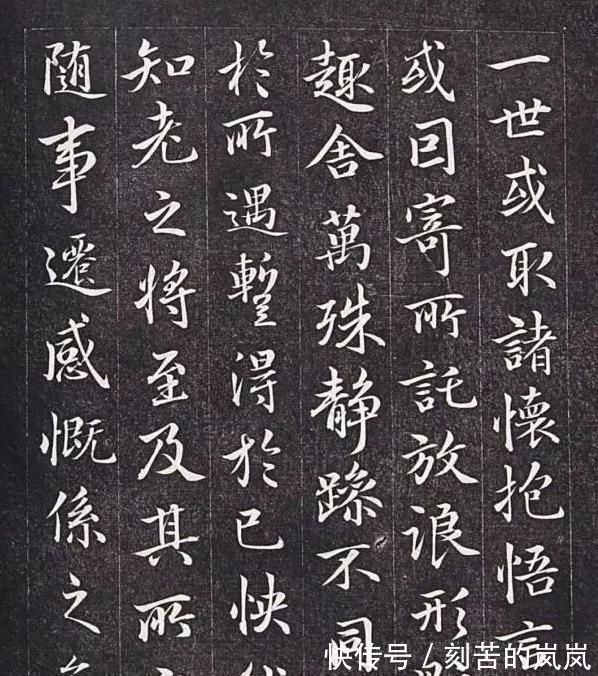 一世或取諸懷抱悟言
或囙寄所託放浪形
趣舍萬殊静躁不同
於所遇暫得於己怏
知老之将至及其所
随事遷感慨係之
快传号/刻苦的岚岚